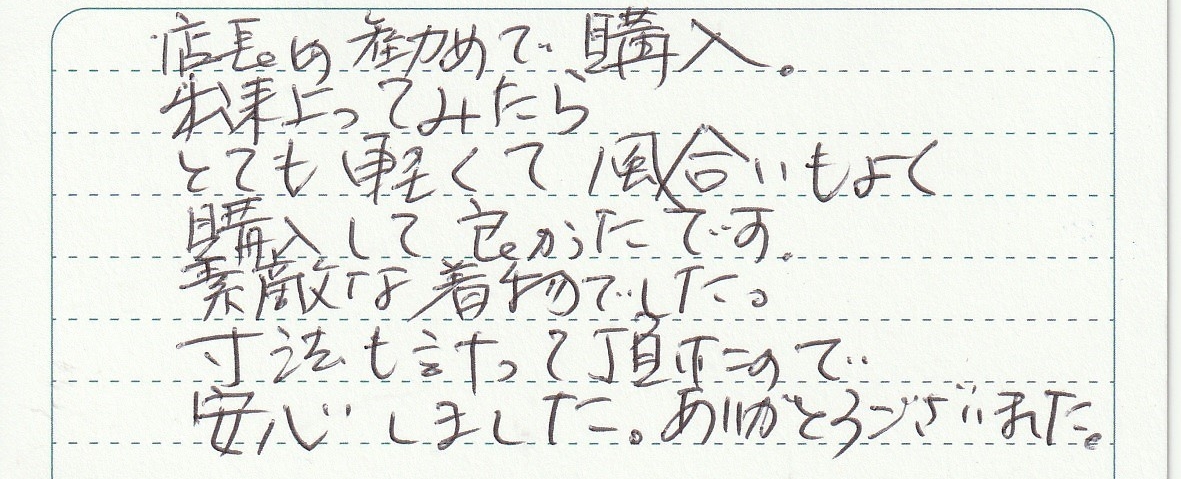 店長の勧めで購入。
出来上ってみたら
とても軽くて風合いもよく
購入して良かったです。
素敵な着物でした。
寸法も計って頂いたので
安心しました。ありがとうございました。